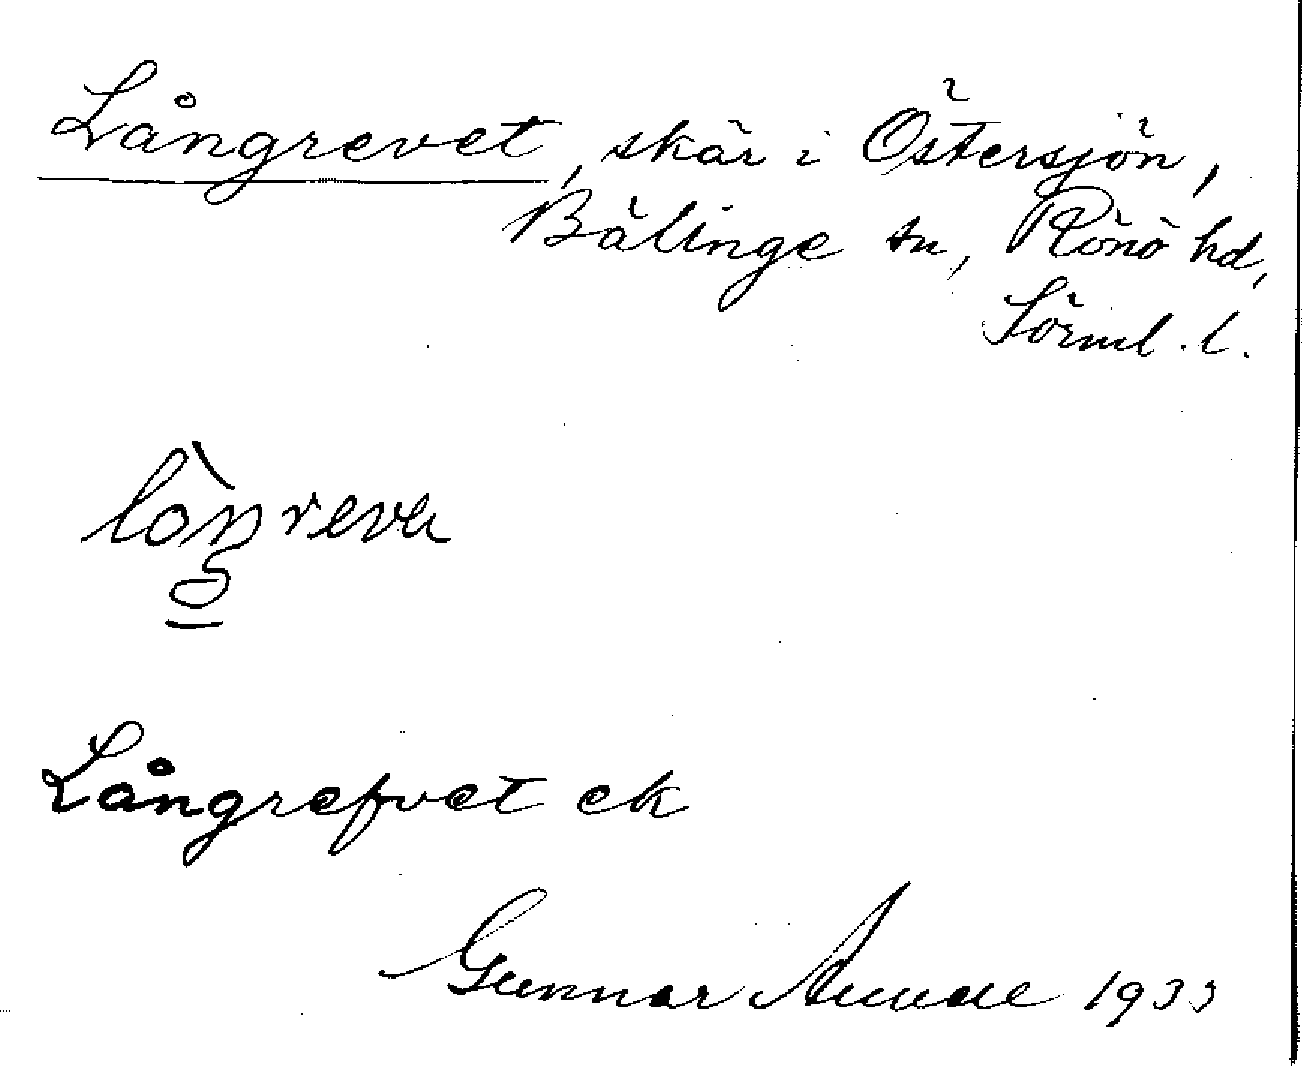 Långrevet, skär i Östersjön,
Bälinge sn, Rönö hd,
Sörml. l.
lòŋreva
Långrefvet ek
Gunnar 1933